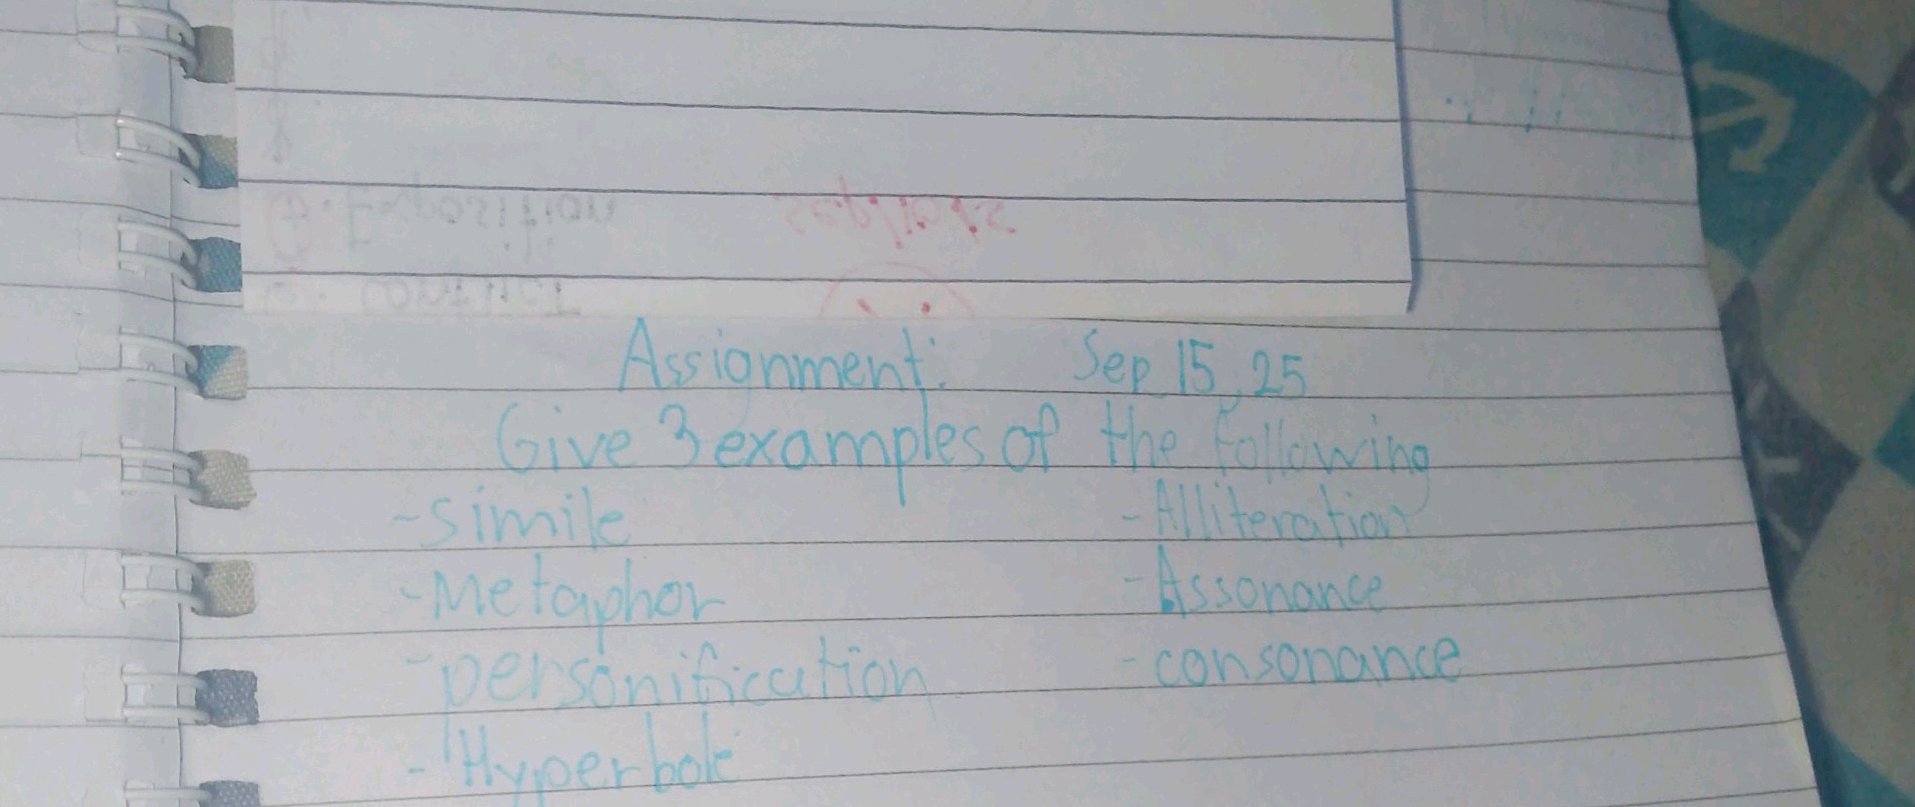 Assignment: Sep 15, 25
Give 3 examples of the following
-simile -Alliteration
-Metaphor -Assonance
-personification -consonance
-Hyperbole